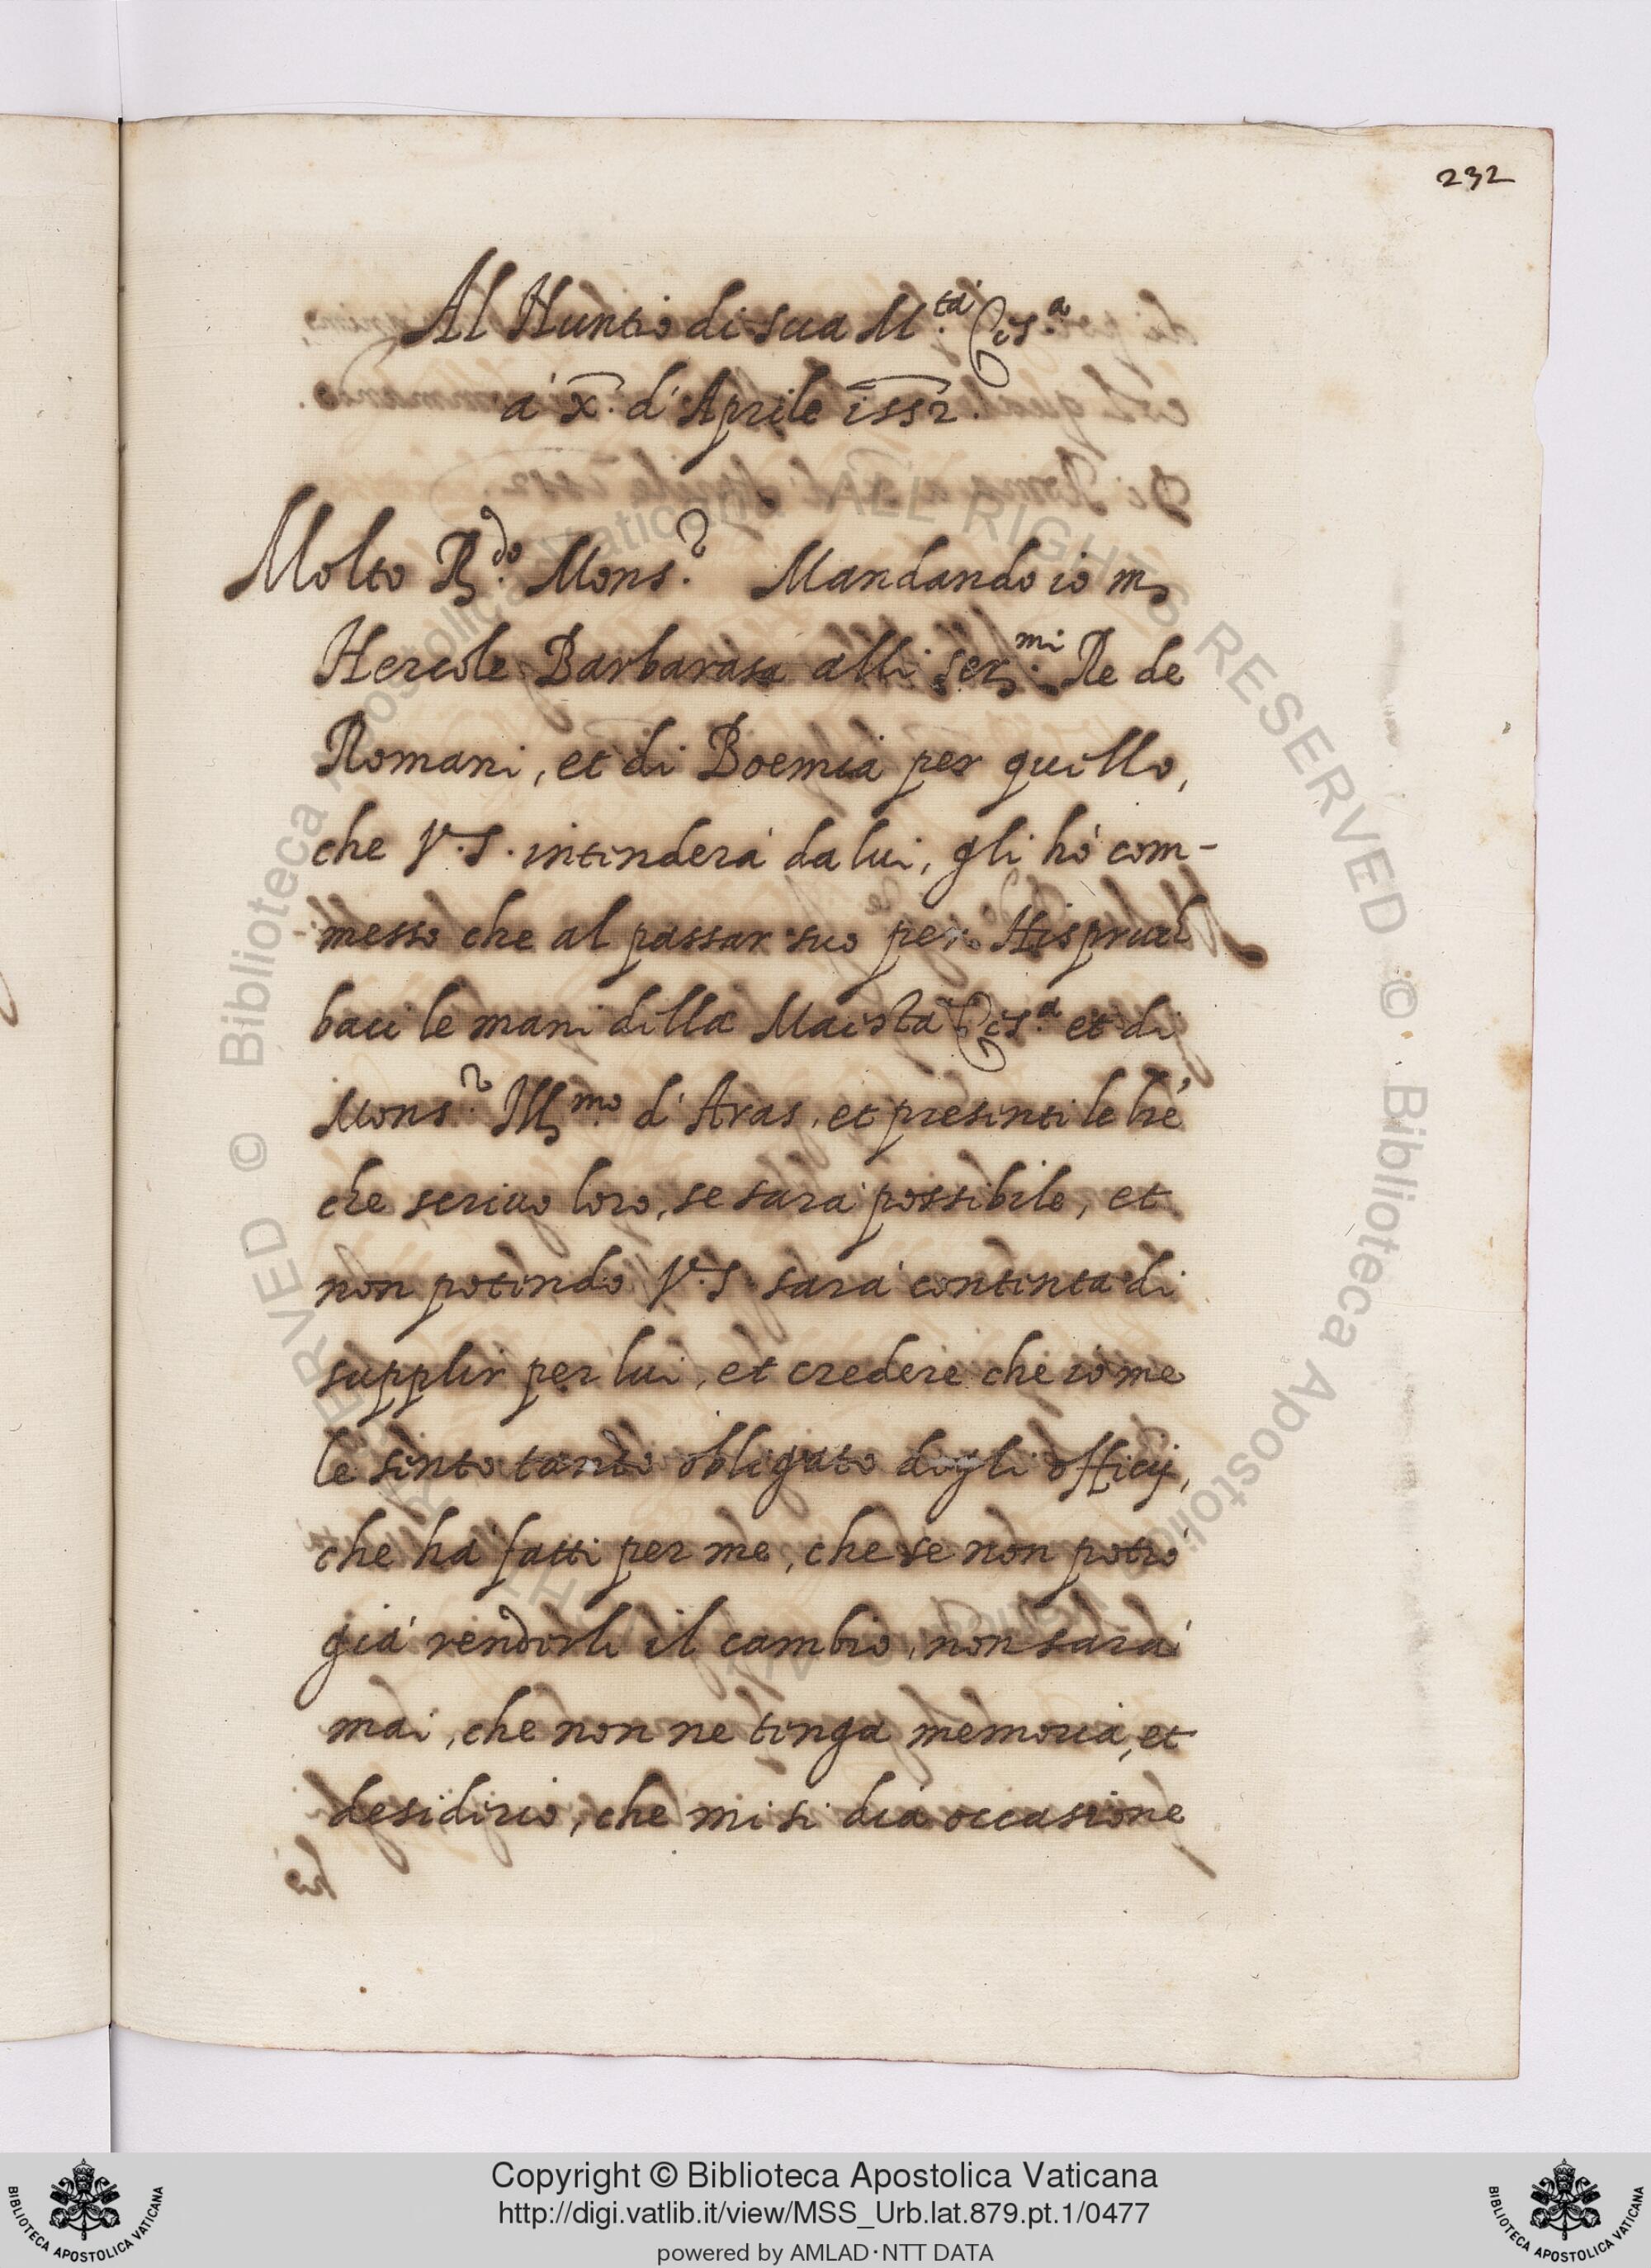 232
Al Nuntio di sua M.tá Ces.a
á x. d'Aprile 1552.
Molto R.do Mons.r Mandando io m.
Hercole Barbarasa alli ser.mi Re de
Romani, et di Boemia per quello,
che V.S. intenderá da lui, gli hó com-
messo che al passar suo per Hispruch
baci le mani della Maestá Ces.a et di
Mons.r Ill.mo d'Aras, et presenti le lre
che scrivo loro, se sará possibile, et
non potendo V.S. sará contenta di
supplir per lui, et credere che io me
le sento tanto obligato degli officij,
che há fatti per me, che se non potró
giá renderli il cambio, non sará
mai, che non ne tenga memoria, et
desiderio, che mi si dia occasione
Copyright © Biblioteca Apostolica Vaticana
http://digi.vatlib.it/view/MSS_Urb.lat.879.pt.1/0477
powered by AMLAD·NTT DATA
BIBLIOTECA APOSTOLICA VATICANA
BIBLIOTECA APOSTOLICA VATICANA
© Biblioteca Apostolica Vaticana ALL RIGHTS RESERVED © Biblioteca Apostolica